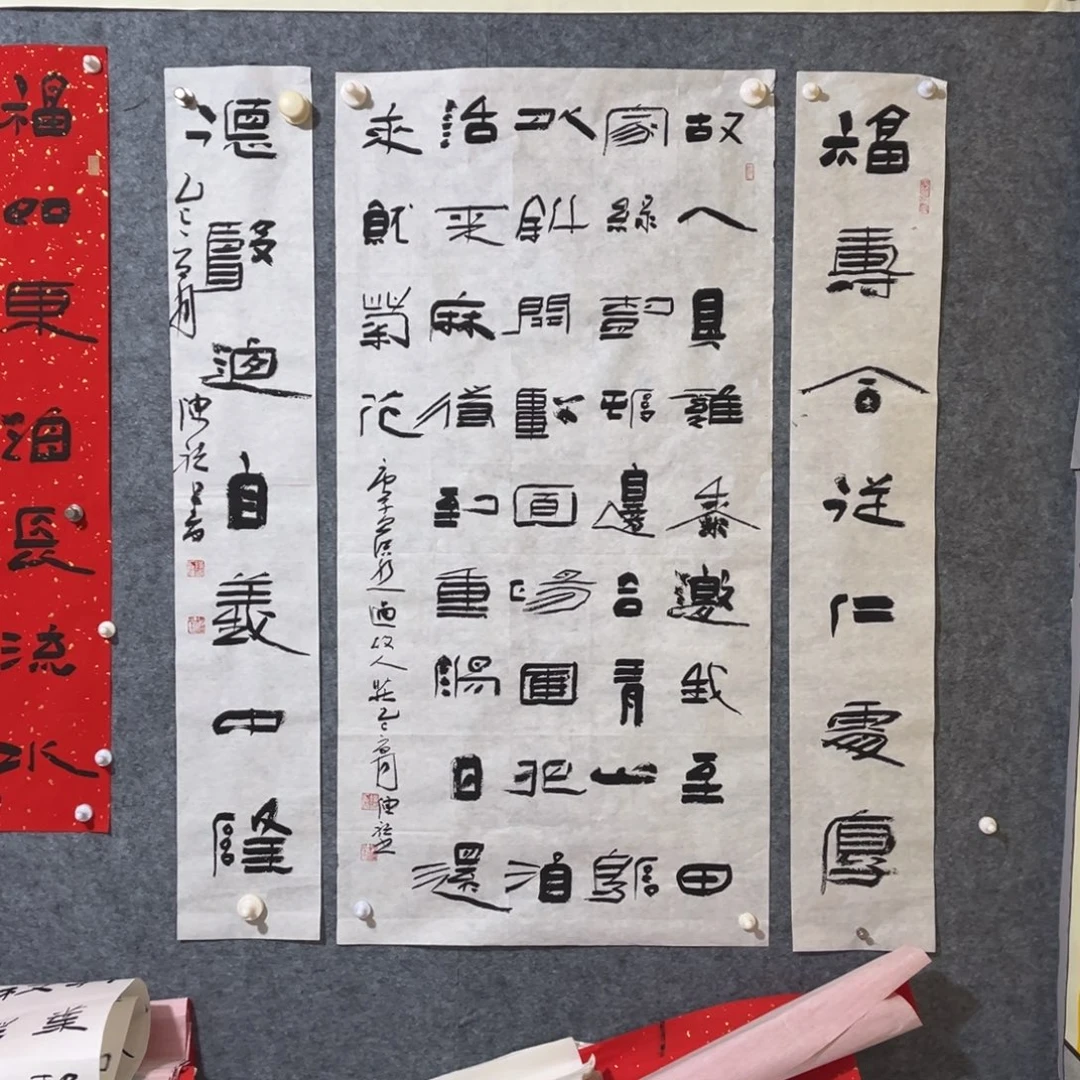 福合從仁處厚
故人具雞黍邀我至田
家綠樹邨邊合青山郭
外斜開軒面場圃把酒
話桑麻待到重陽日還
來就菊花
唐孟浩然過故人莊乙巳月陳
德馨迺自義中隆
乙巳月
陳書
福如東海長流水